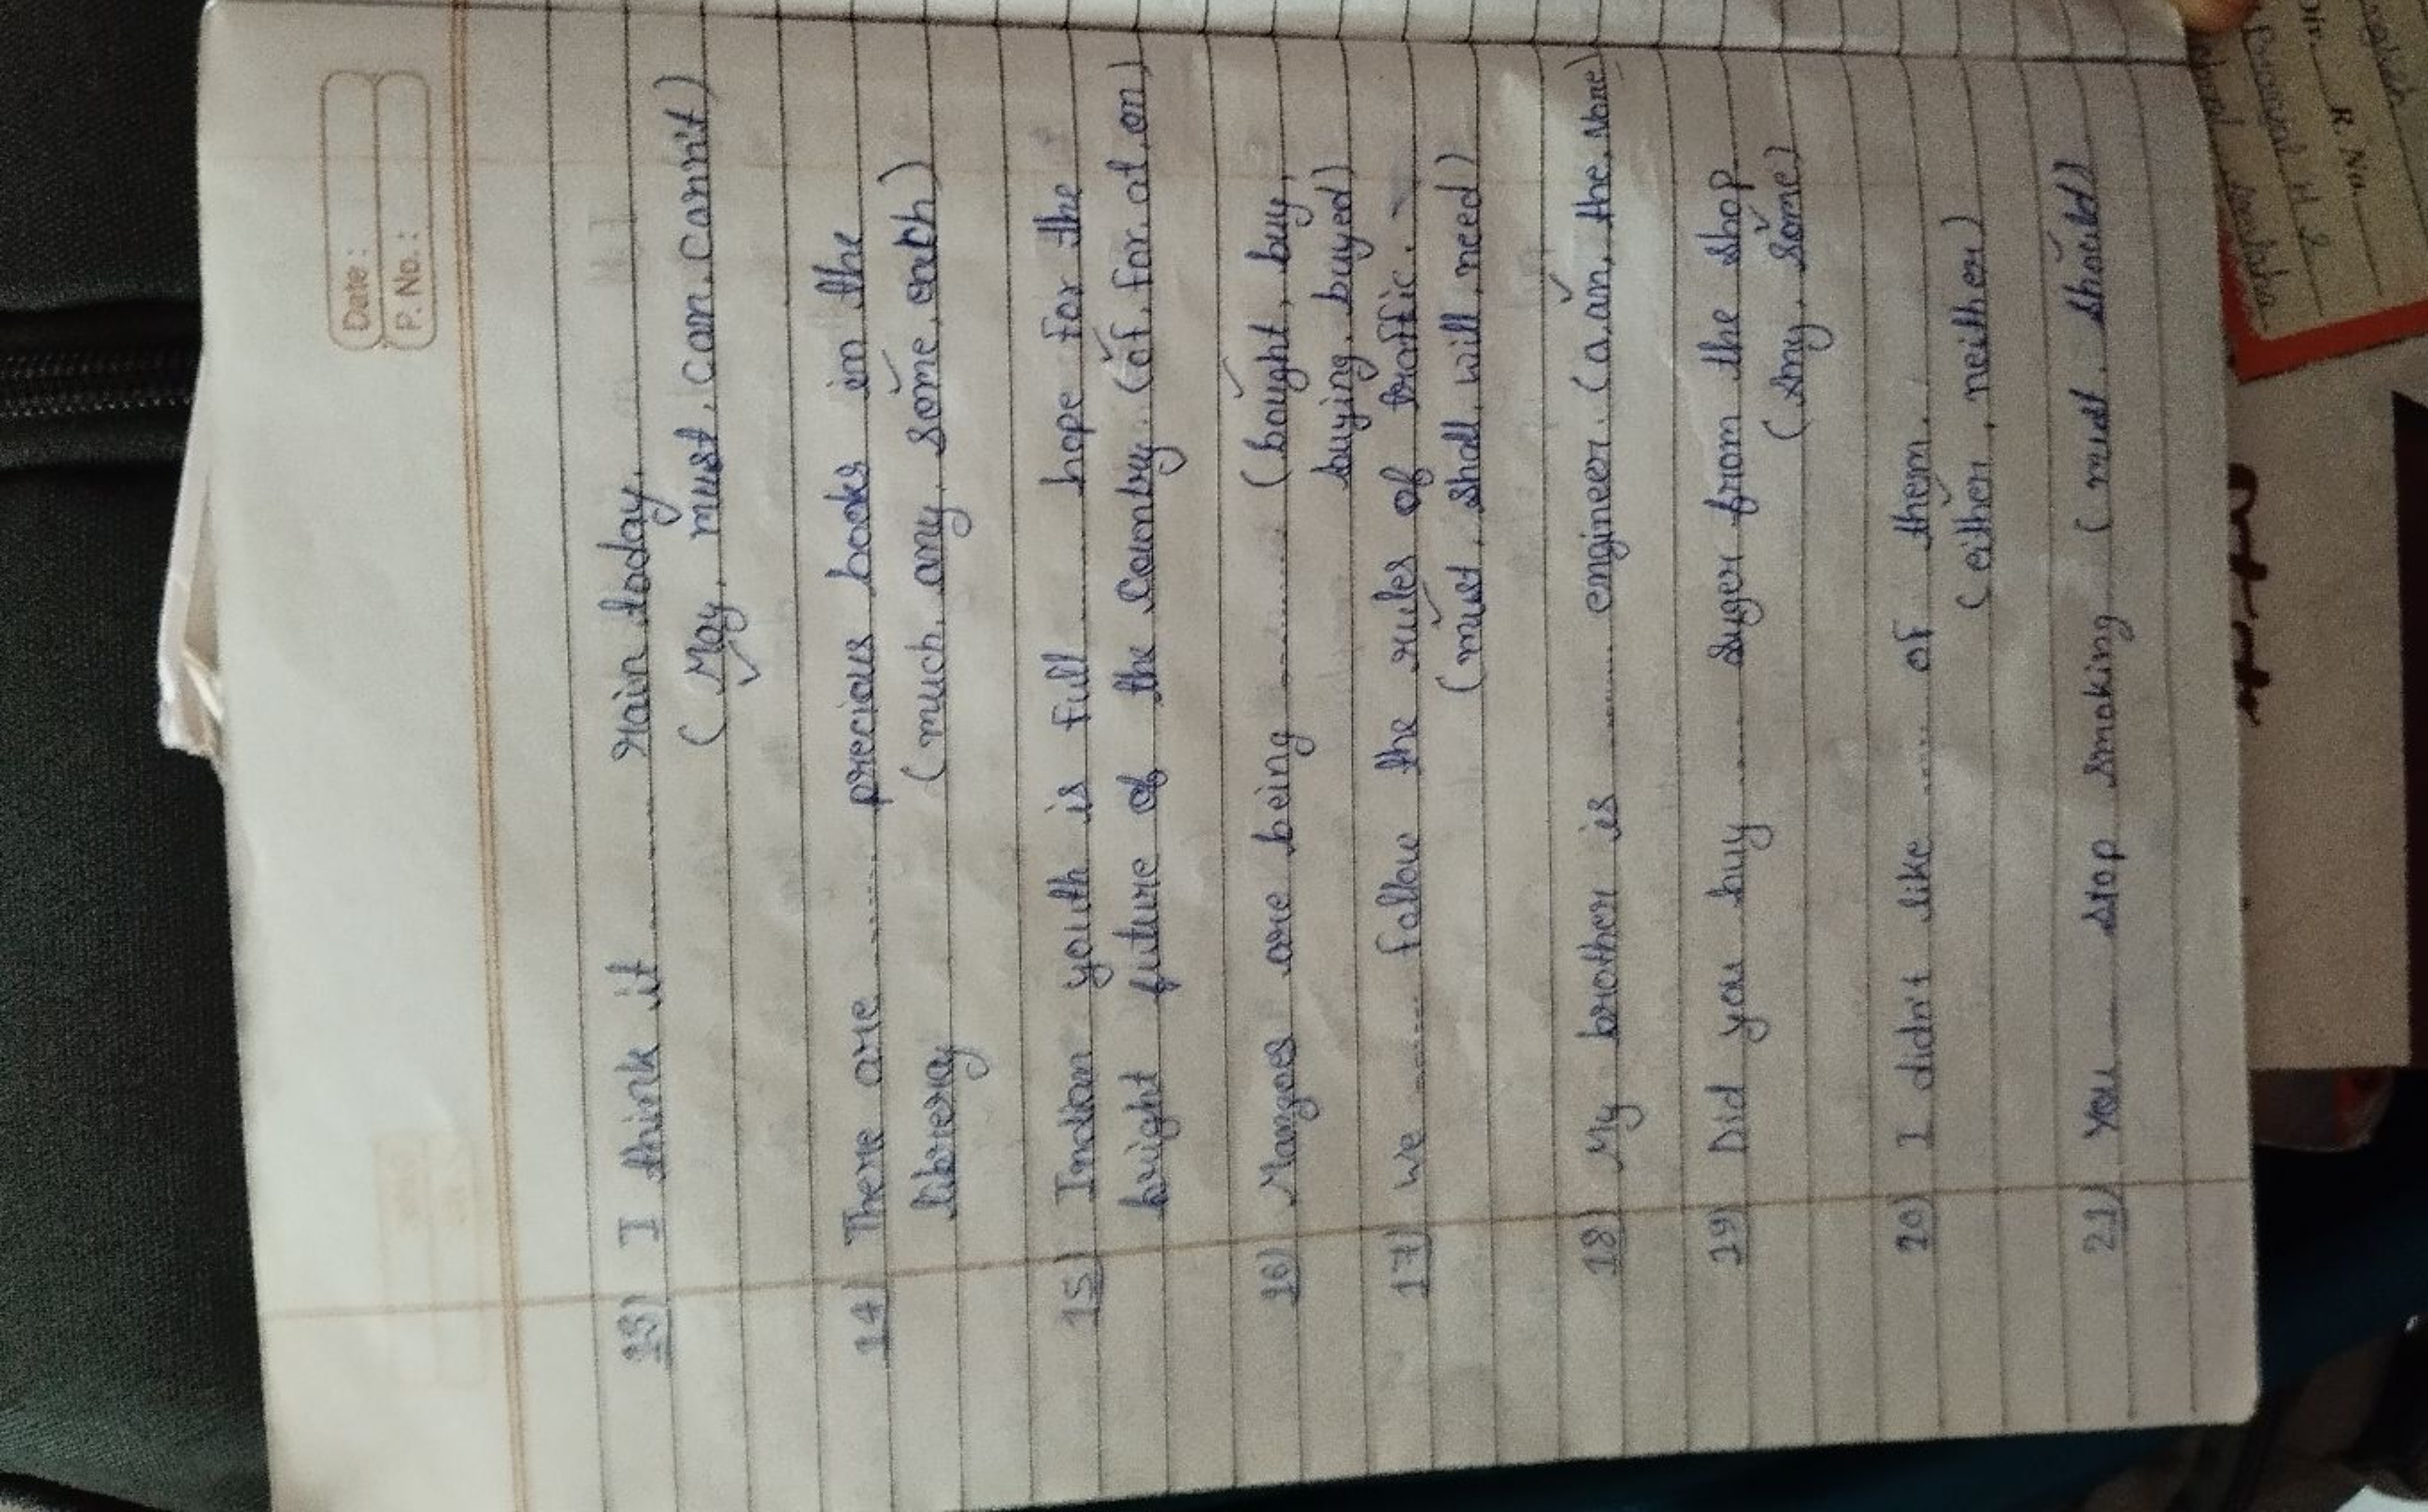 Date :
P. No. :
13) I think it ........ rain today.
( May, must, can, cann't)
14) There are ........ precious books in the
librery (much, any, some, each)
15) Indian youth is full ...... hope for the
bright future of the country. (of, for, at, on)
16) Mangoes are being ........ (bought, buy,
buying, buyed)
17) we ........ follow the rules of traffic.
(must, shall, will, need)
18) My brother is ........ engineer. (a, an, the, None)
19) Did you buy ..... suger from the shop
(any, some)
20) I didn't like ..... of them.
( either, neither)
21) You ..... stop smoking ( must, should)
Dir. R. No.